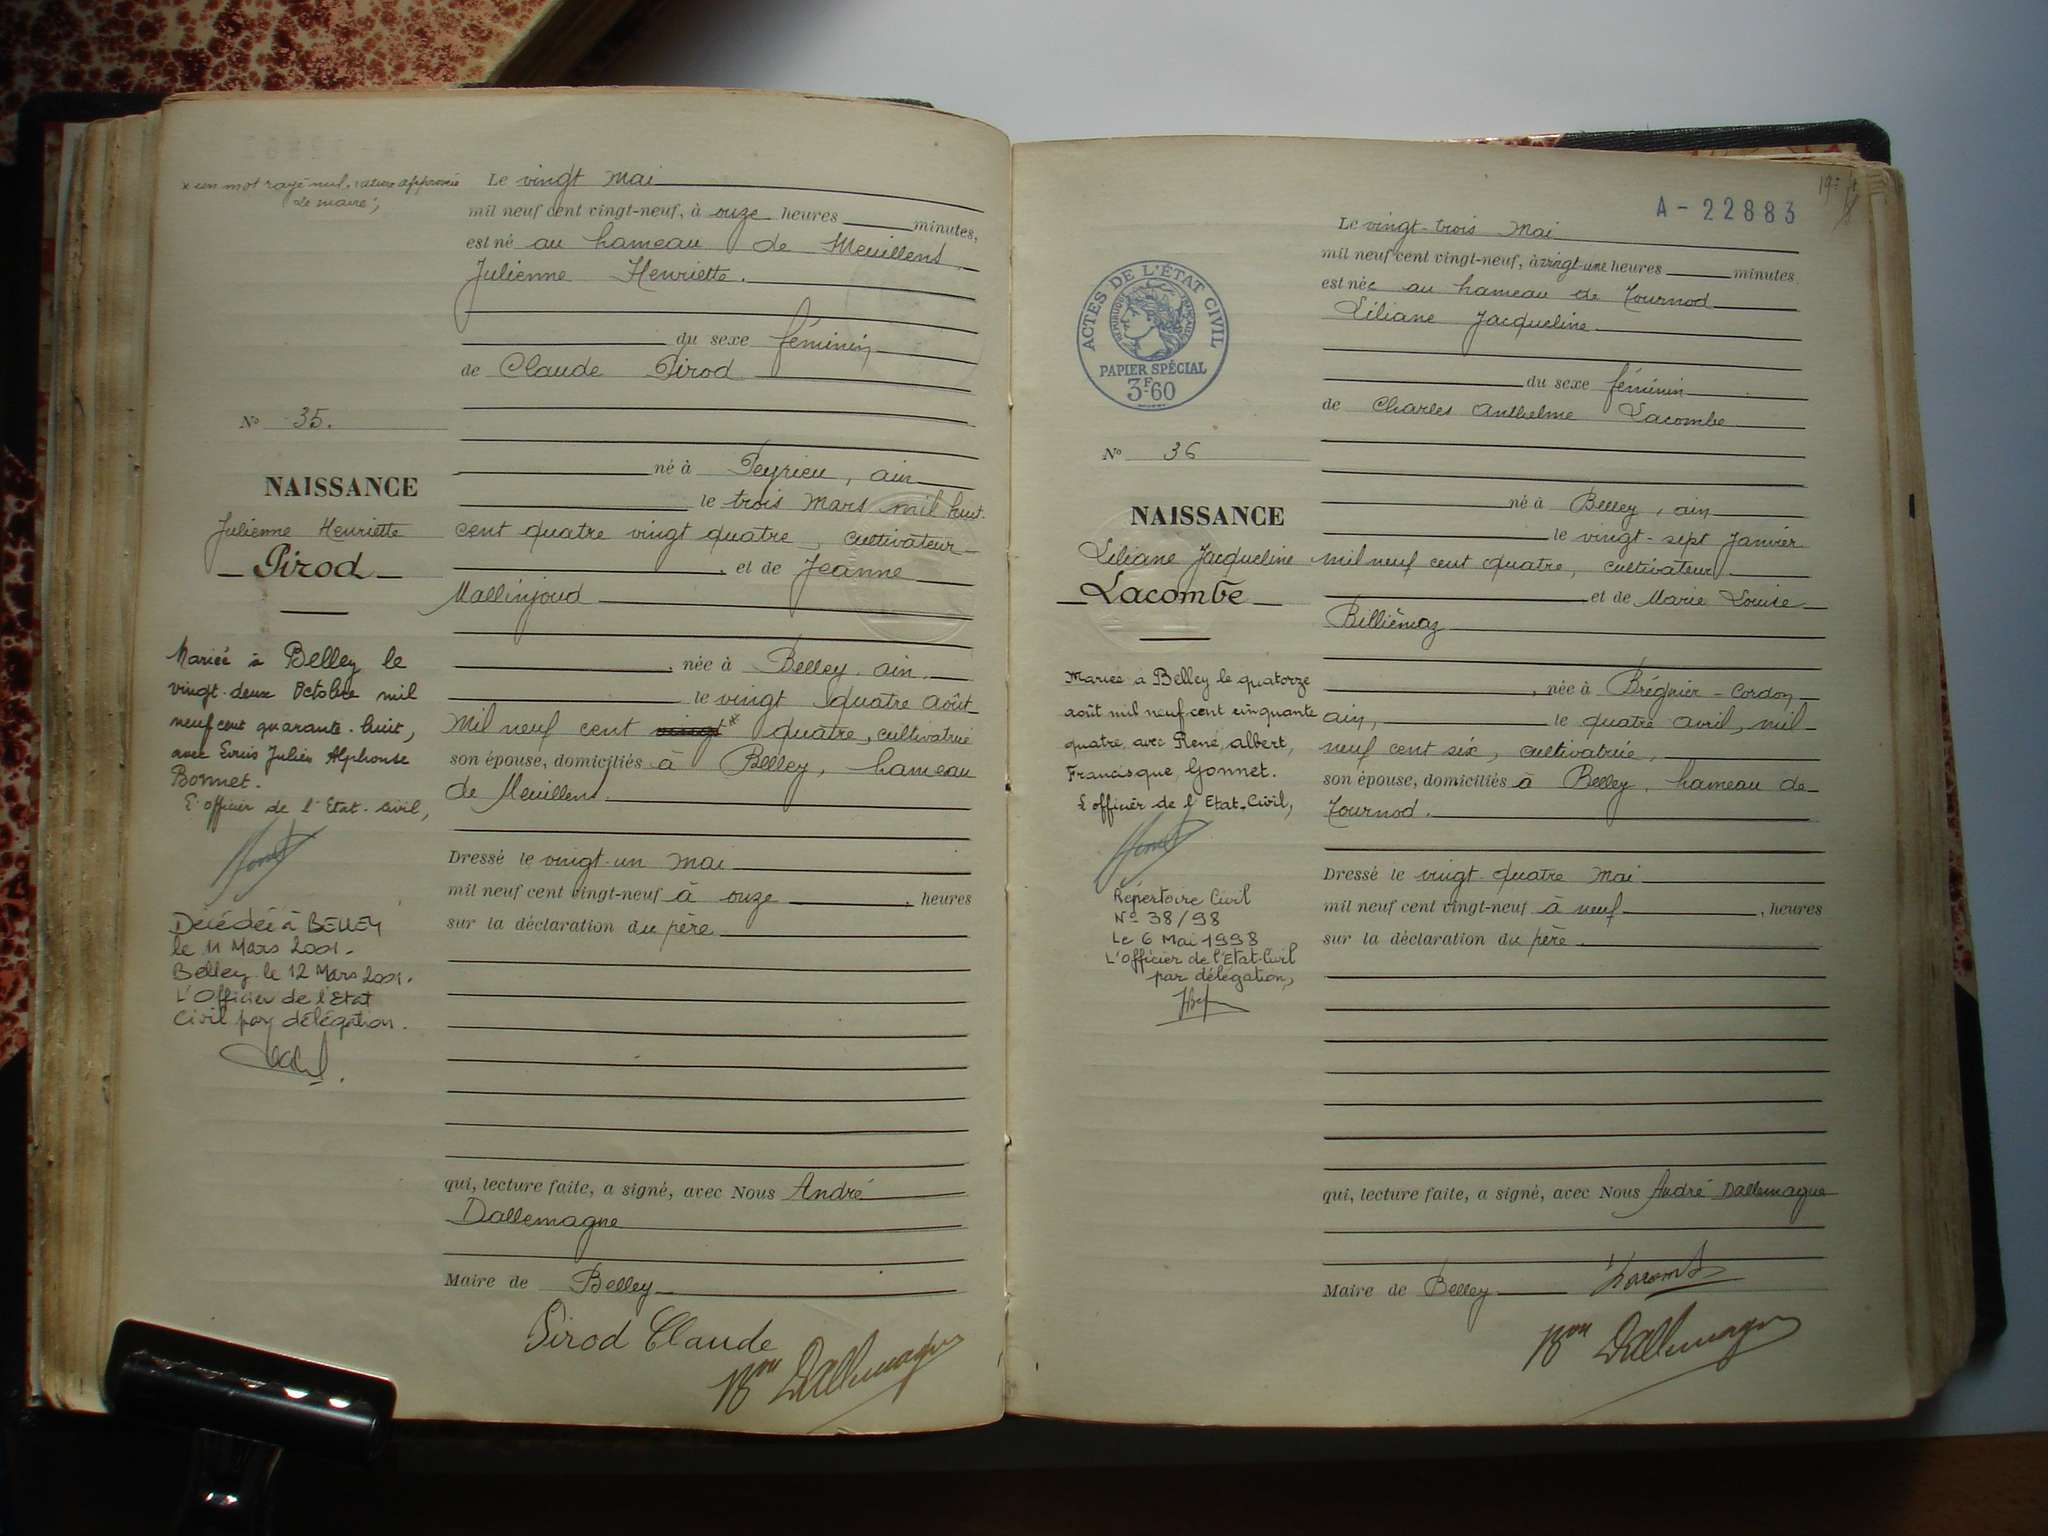 * un mot rayé nul, rature approuvée
Le maire,
Le vingt mai
mil neuf cent vingt-neuf, à onze heures minutes,
est né au hameau de Meuillens
Julienne Henriette.
du sexe féminin
de Claude Pirod
No 35.
né à Peyrieu, ain
le trois mars mil huit
NAISSANCE
Julienne Henriette
Pirod
cent quatre vingt quatre, cultivateur
, et de Jeanne
Mallinjoud
, née à Belley, ain.
le vingt quatre août
mil neuf cent vingt* quatre, cultivatrice
son épouse, domiciliés à Belley, hameau
de Meuillens.
Mariée à Belley le
vingt-deux Octobre mil
neuf cent quarante-huit,
avec Julien Alphonse
Bonnet.
L'officier de l'Etat-civil,
Décédée à BELLEY
le 11 Mars 2001.
Belley le 12 Mars 2001.
L'Officier de l'Etat
Civil par délégation.
Dressé le vingt-un mai
mil neuf cent vingt-neuf à onze , heures
sur la déclaration du père
qui, lecture faite, a signé, avec Nous André
Dallemagne
Maire de Belley
Pirod Claude
Bon Dallemagne
A-22883
Le vingt-trois mai
mil neuf cent vingt-neuf, à vingt-une heures minutes
est née au hameau de Tournod
Liliane Jacqueline
ACTES DE L'ÉTAT CIVIL
RÉPUBLIQUE FRANÇAISE
PAPIER SPÉCIAL
3F60
du sexe féminin
de Charles Anthelme Lacombe
No 36
né à Belley, ain
le vingt-sept Janvier
NAISSANCE
Liliane Jacqueline
Lacombe
mil neuf cent quatre, cultivateur
et de Marie Louise
Billiémaz
, née à Brégnier-Cordon
ain, le quatre avril, mil
neuf cent six, cultivatrice,
son épouse, domiciliés à Belley, hameau de
Tournod.
Mariée à Belley le quatorze
août mil neuf cent cinquante
quatre, avec René, albert,
Francisque, Gonnet.
L'officier de l'Etat-Civil,
Répertoire Civil
No 38/98
Le 6 Mai 1998
L'Officier de l'Etat-Civil
par délégation,
Dressé le vingt-quatre mai
mil neuf cent vingt-neuf à neuf , heures
sur la déclaration du père
qui, lecture faite, a signé, avec Nous André Dallemagne
Maire de Belley
Lacombe
Bon Dallemagne